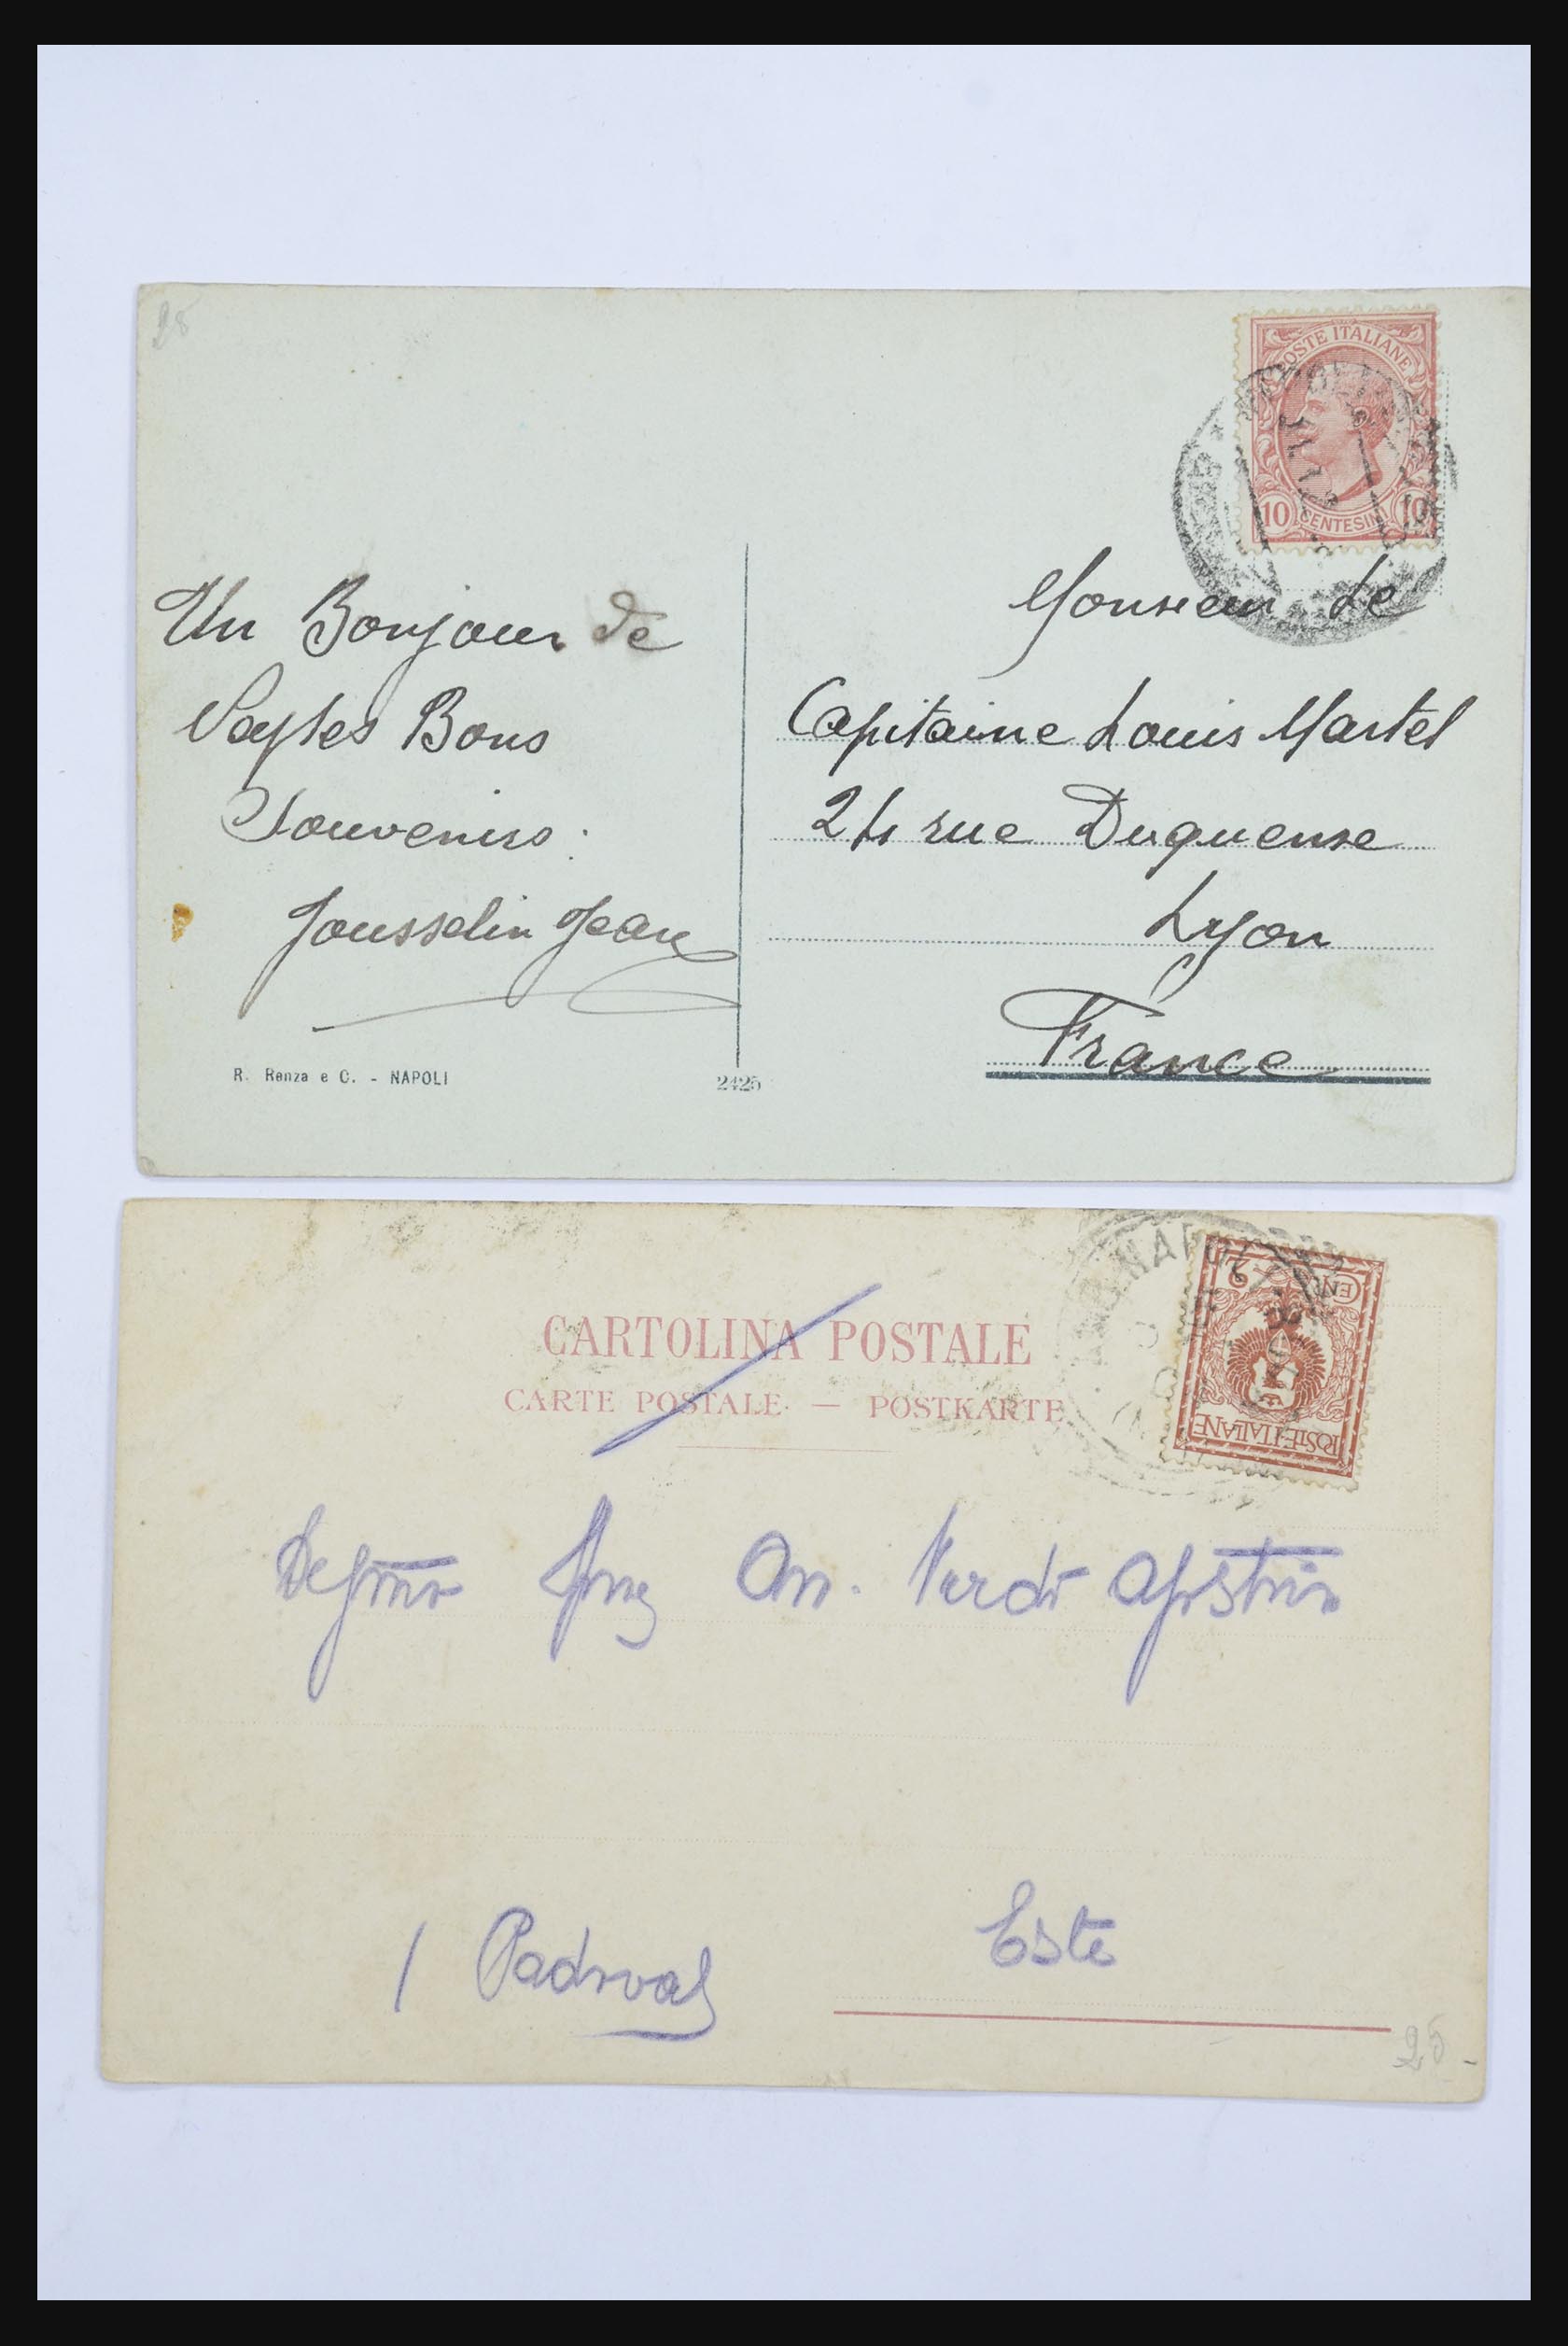 28
POSTE ITALIANE
10 CENTESIMI 10
Un Bonjour de
Bons
Souvenirs.
Jousselin Jean
Monsieur Le
Capitaine Louis Martel
24 rue Duquense
Lyon
France
R. Renza e C. - NAPOLI
2425
CARTOLINA POSTALE
CARTE POSTALE — POSTKARTE
NAPOLI
POSTE ITALIANE
2 CEN
On. Verdi
Este
25 -